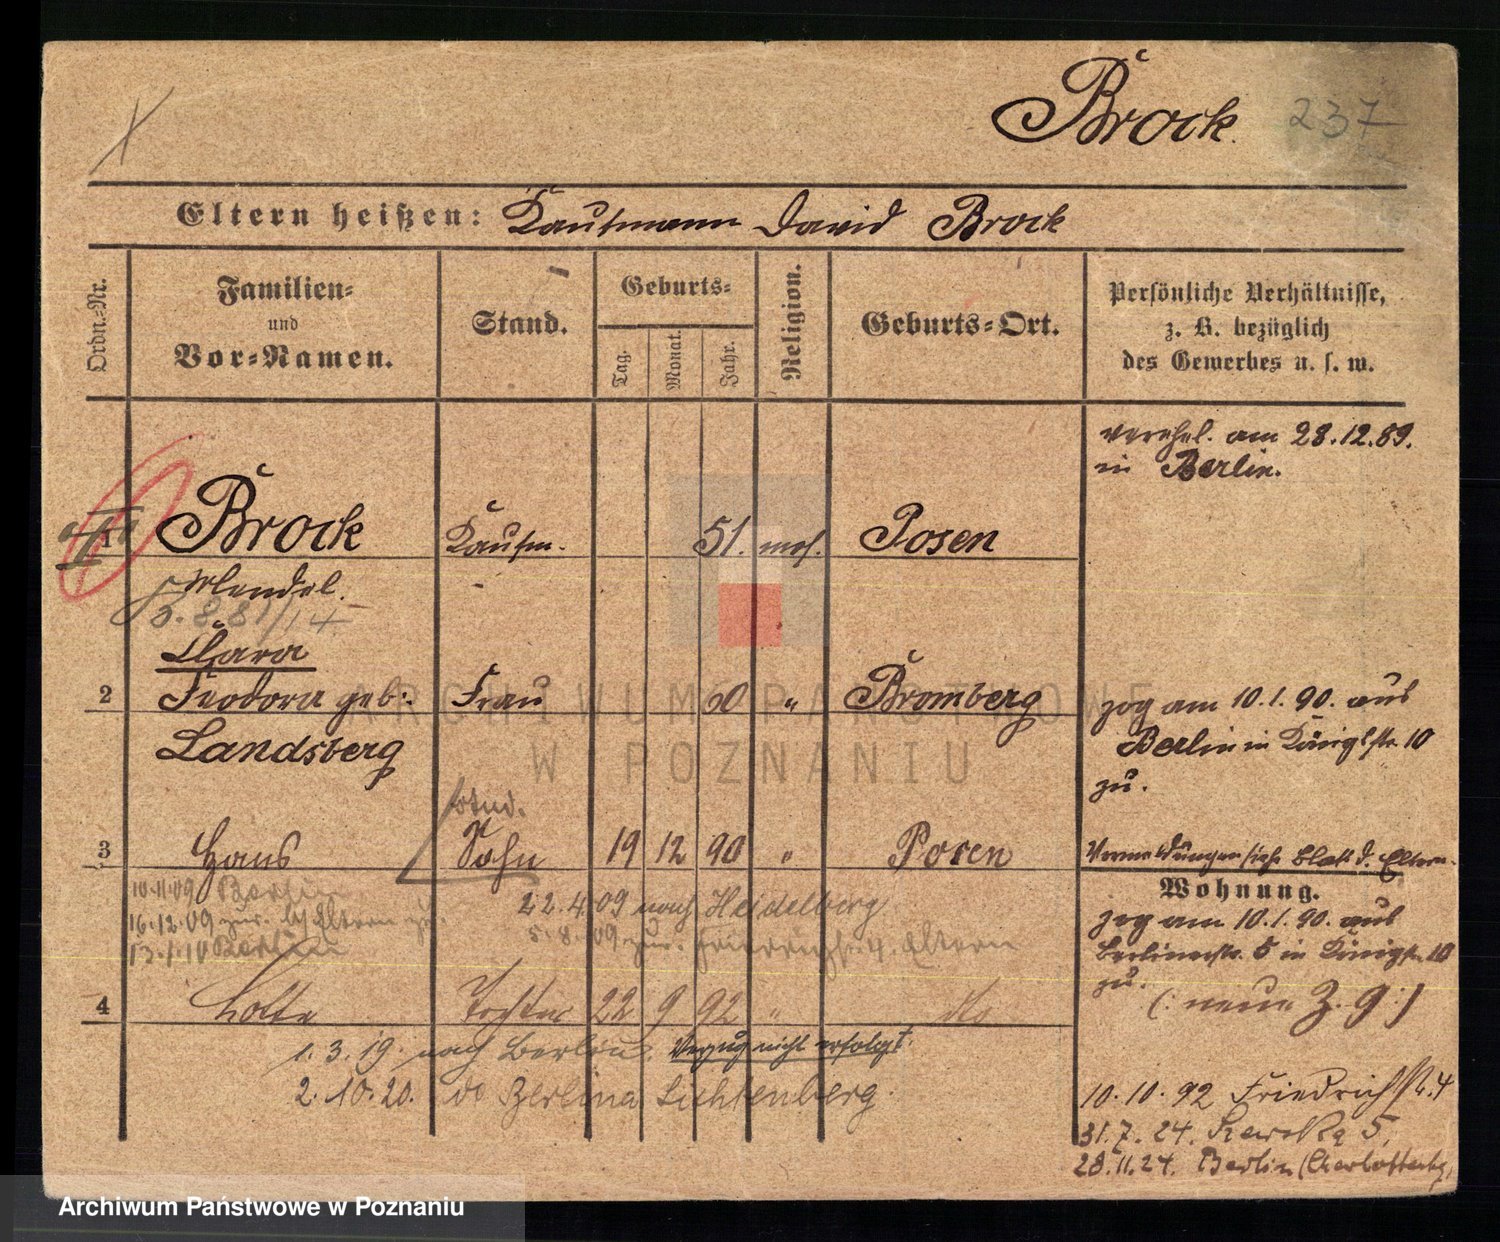 Brock. 237
Eltern heißen: Kaufmann David Brock
Ordn.-Nr.
Familien-
und
Vor-Namen.
Stand.
Geburts-
Tag.
Monat.
Jahr.
Religion.
Geburts-Ort.
Persönliche Verhältnisse,
z. B. bezüglich
des Gewerbes u. s. w.
verehel. am 28.12.89.
in Berlin.
1 Brock Kaufm. 51. mos. Posen
Mendel.
Clara
2 Teodora geb: Frau 60 " Bromberg
Landsberg
zog am 10.1.90. aus
Berlin in Königstr. 10
zu.
Stud.
3 Hans Sohn 19 12 90 " Posen
Vermeldungen siehe Blatt d. Eltern.
Wohnung.
10.11.09 Berlin
16.12.09 zur. Eltern zu.
13.1.10 Berlin
22.4.09 nach Heidelberg
5.8.09 zur. Friedrichstr. 4. Eltern
zog am 10.1.90. aus
Berlinerstr. 5 in Königstr. 10
zu.
(: neue Z. 9 :)
4 Lotte Tochter 22 9 92 " do
1.3.19. nach Berlin. Verzug nicht erfolgt.
2.10.20. do Berlin Lichtenberg.
10.10.92 Friedrichstr. 4
31.7.24. 5,
28.11.24. Berlin (Charlottenbg.
ARCHIWUM PAŃSTWOWE
W POZNANIU
Archiwum Państwowe w Poznaniu